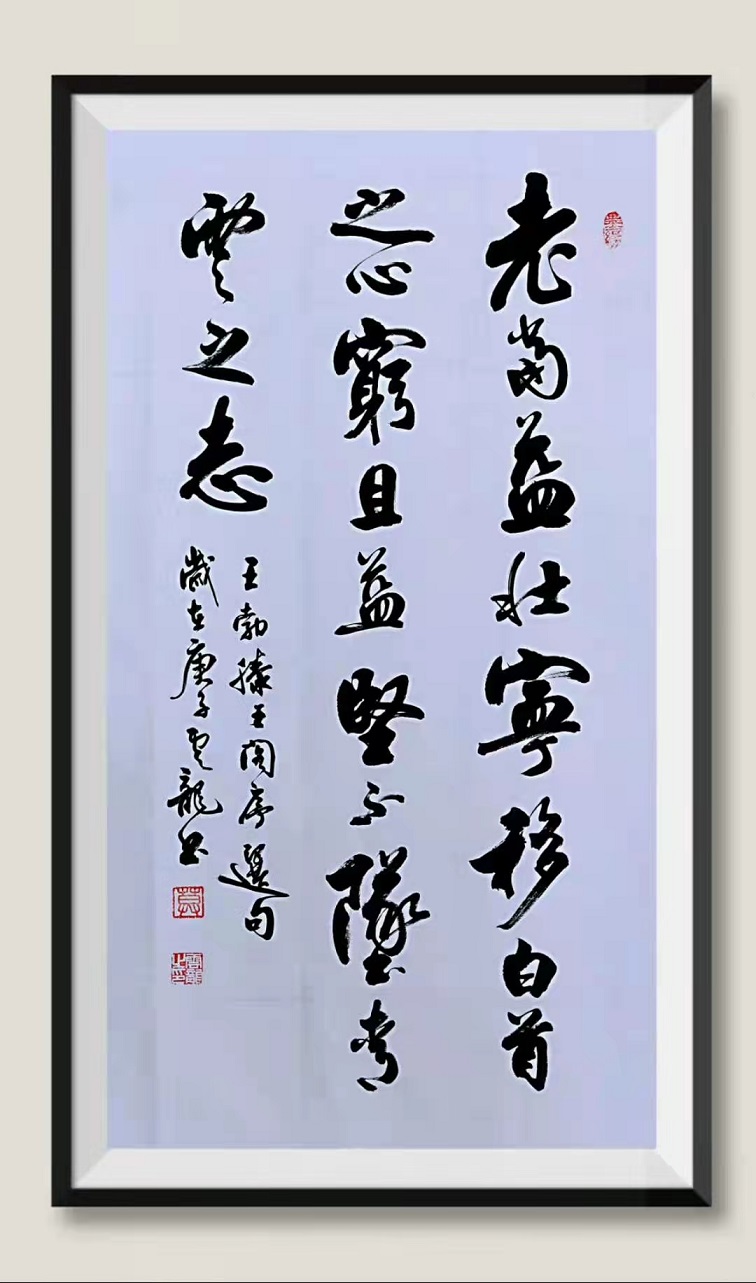 老當益壯寧移白首
之心窮且益堅不墜青
雲之志
王勃滕王閣序選句
歲在庚子雲龍書
雲龍之印